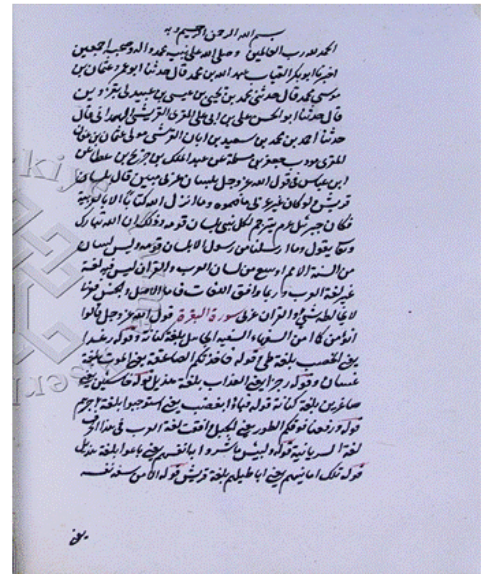 بسم الله الرحمن الرحيم وبه
الحمد لله رب العالمين وصلى الله على نبيه محمد واله وصحبه اجمعين
اخبرنا ابو بكر القباب عبد الله بن محمد قال حدثنا ابو عمرو عثمان بن
موسى محمد قال حدثني محمد بن يحيى بن عيسى بن عبيد
قال حدثنا ابو الحسن علي بن المقرى القرشي قال
حدثنا احمد بن محمد بن سعيد بن ابان القرشي مولى عثمان بن عفان
المقرى جعفر بن مسلمة عن عبد الملك بن جريج عن عطا عن
ابن عباس في قول الله عز وجل بلسان عربي مبين قال بلسان
قريش لو كان غير عربي ما فهموه وما انزل الله كتابا الا بالعربية
فكان جبرئيل عم يترجم لكل نبي بلسان قومه وذلك ان الله تبارك
وتعا يقول وما ارسلنا من رسول الا بلسان قومه وليس لسان
من السنة الامم اوسع من لسان العرب والقران ليس فيه لغة
غير لغة العرب وربما وافق اللغات فاما الاصل والجنس
لا يخالطه شئ والقران عربي سورة البقرة قول الله عز وجل قالوا
انؤمن كما آمن السفهاء السفيه الجاهل بلغة كنانة وقوله رغدا
يعني الخصب بلغة طى قوله فاخذتكم الصاعقة يعني الموت بلغة
غسان وقوله رجزا يعني العذاب بلغة هذيل قوله خاسئين يعني
صاغرين بلغة كنانة قوله فباؤا بغضب يعني استوجبوا بلغة جرهم
قوله ورفعنا فوقكم الطور يعني الجبل وافقت لغة العرب في هذا الحرف
لغة السريانية قوله ولبئس ما شروا به انفسهم يعني باعوا بلغة هذيل
قوله تلك امانيهم يعني اباطيلهم بلغة قريش قوله الا من سفه نفسه
يعني